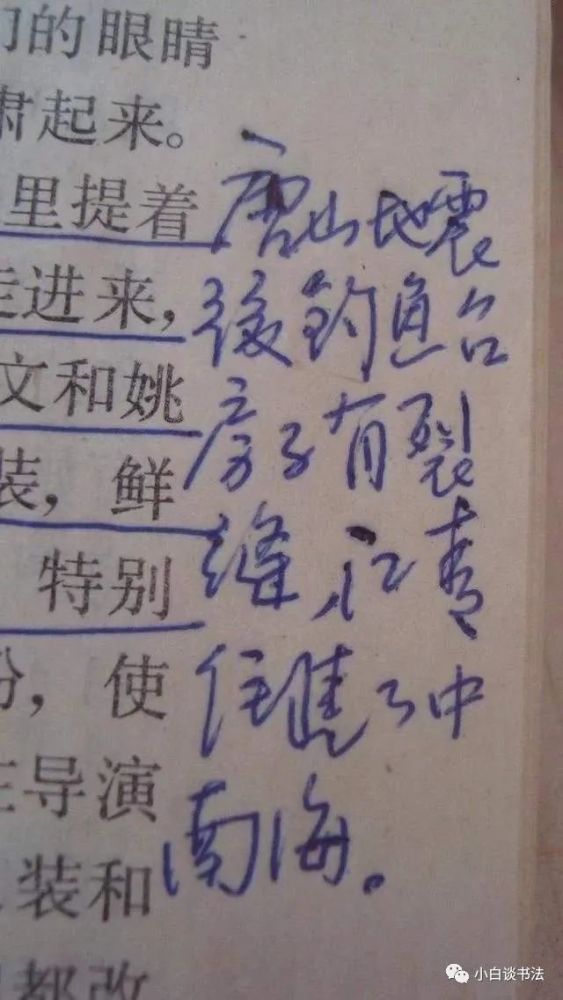 们的眼睛
肃起来。
里提着
走进来，
文和姚
装，鲜
特别
使
导演
装和
都改
唐山地震
後钓鱼台
房子有裂
缝，江青
住進了中
南海。
小白谈书法